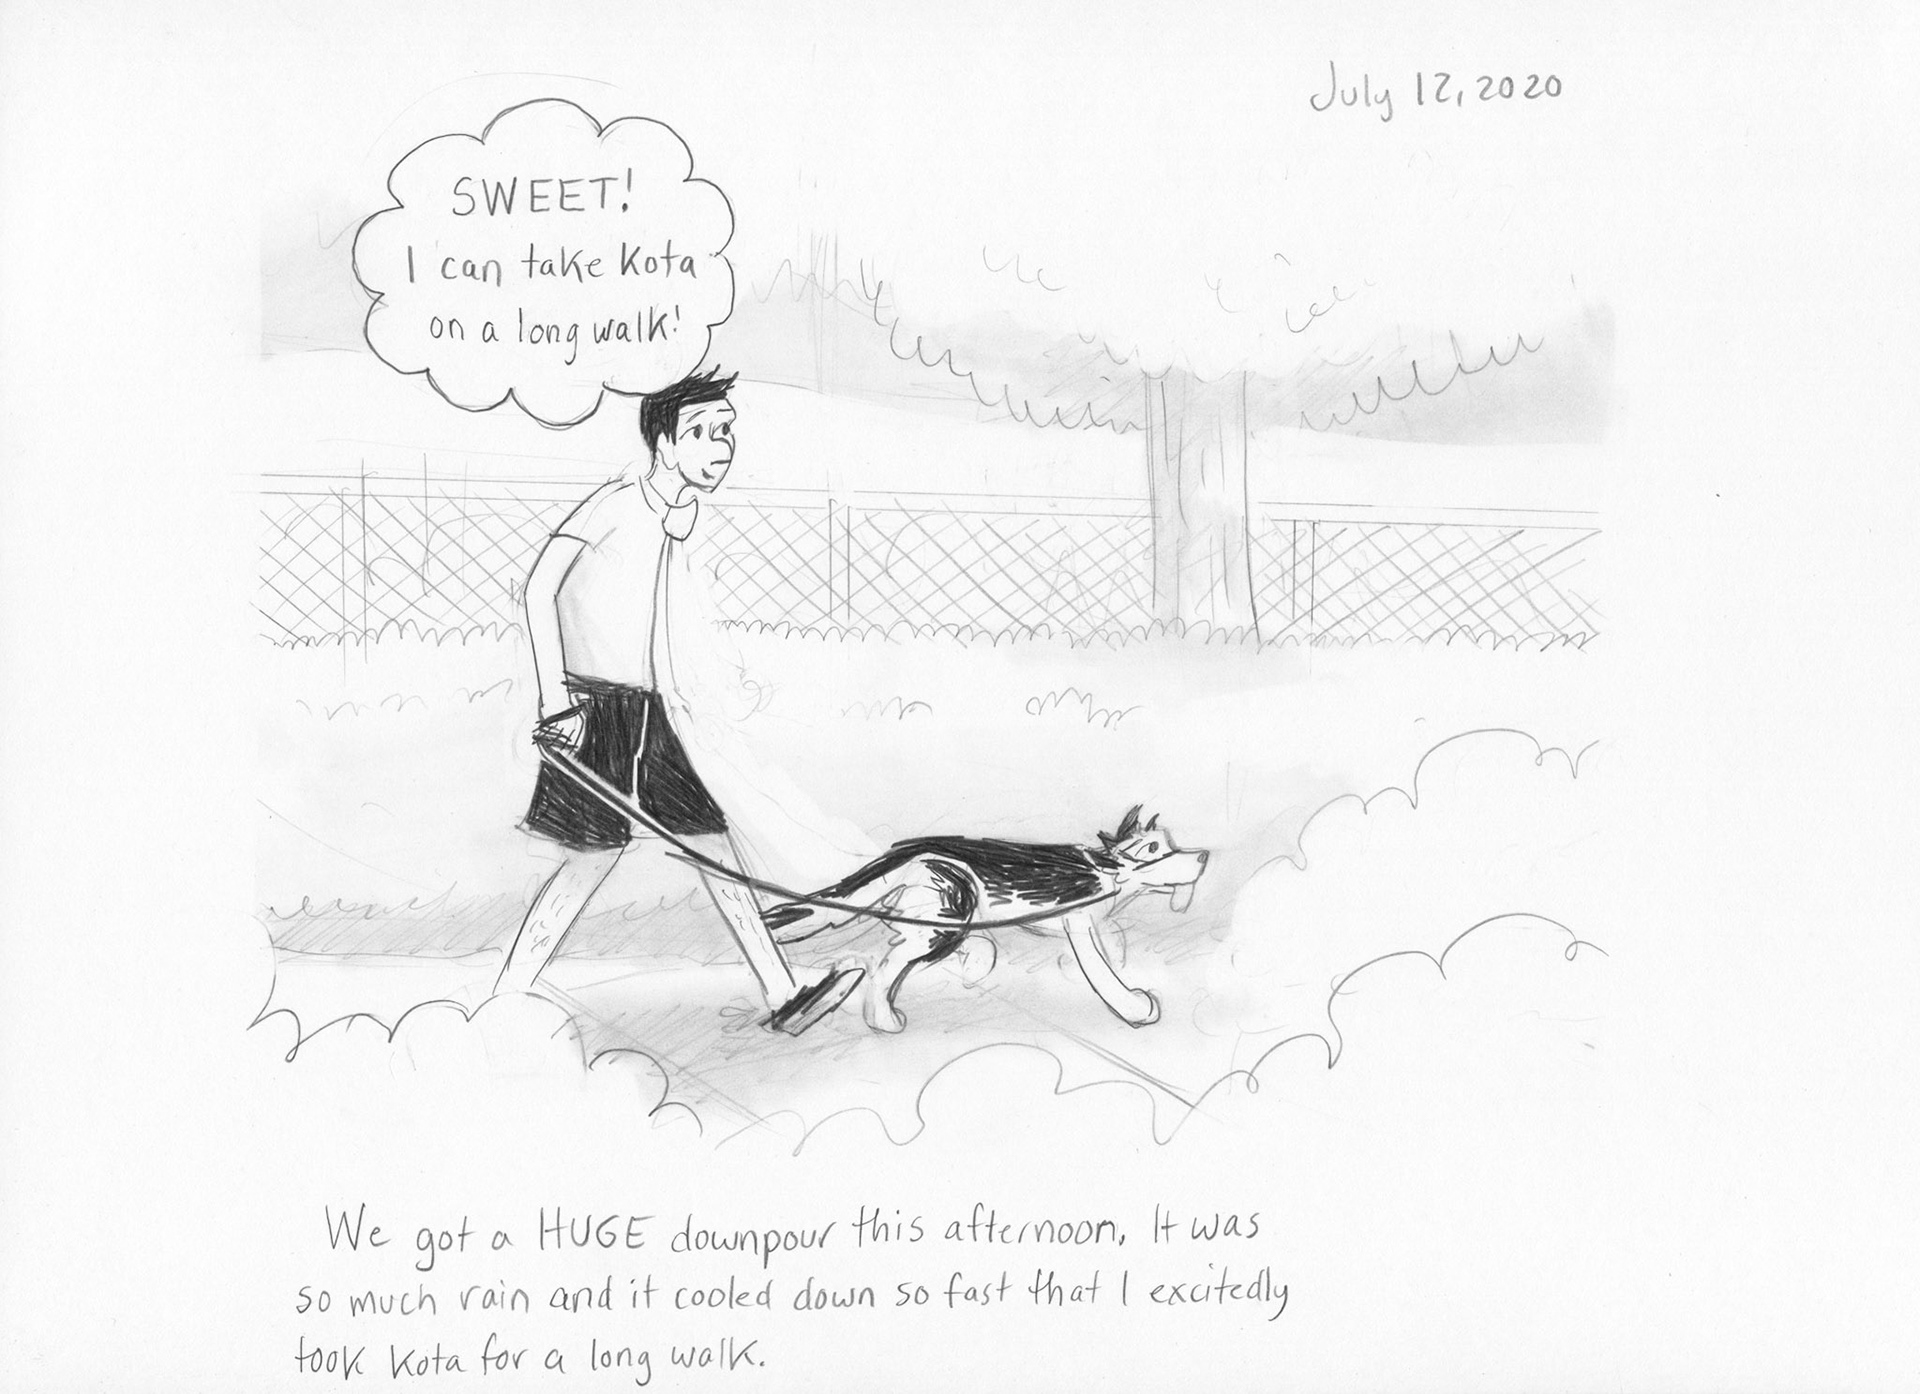 July 12, 2020
SWEET!
I can take Kota
on a long walk!
We got a HUGE downpour this afternoon. It was
so much rain and it cooled down so fast that I excitedly
took Kota for a long walk.